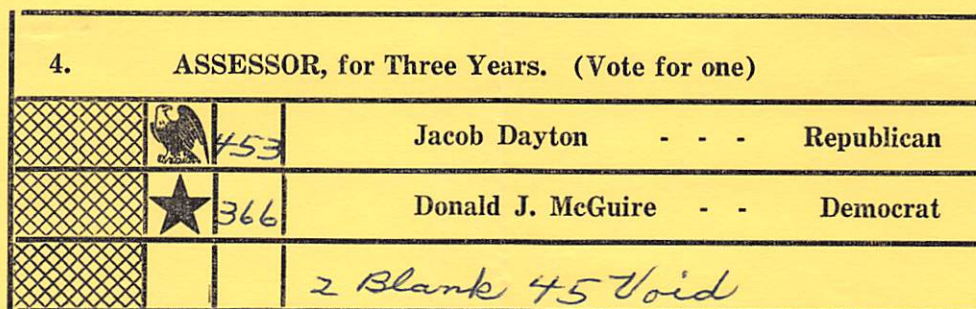 4. ASSESSOR, for Three Years. (Vote for one)
453 Jacob Dayton - - - Republican
366 Donald J. McGuire - - Democrat
2 Blank 45 Void